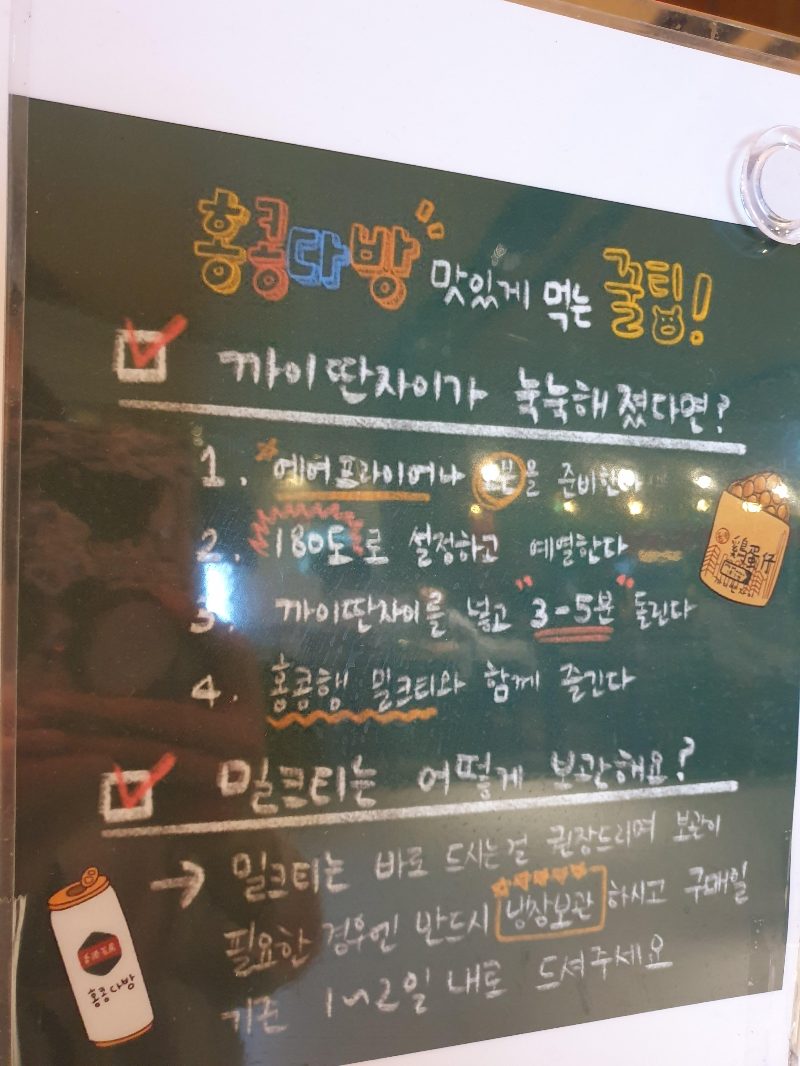 홍콩다방 맛있게 먹는 꿀팁!
까이딴자이가 눅눅해졌다면?
1. 에어프라이어나 을 준비한다
2. 180도로 설정하고 예열한다
3. 까이딴자이를 넣고 "3-5분" 돌린다
4. 홍콩행 밀크티와 함께 즐긴다
밀크티는 어떻게 보관해요?
→ 밀크티는 바로 드시는걸 권장드리며 보관이
필요한 경우엔 반드시 냉장보관 하시고 구매일
기준 1~2일 내로 드셔주세요
홍콩다방